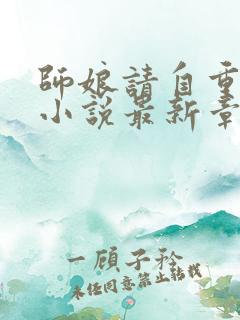 師娘請自重
小說最新章
一顧子矜
未经同意禁止转载